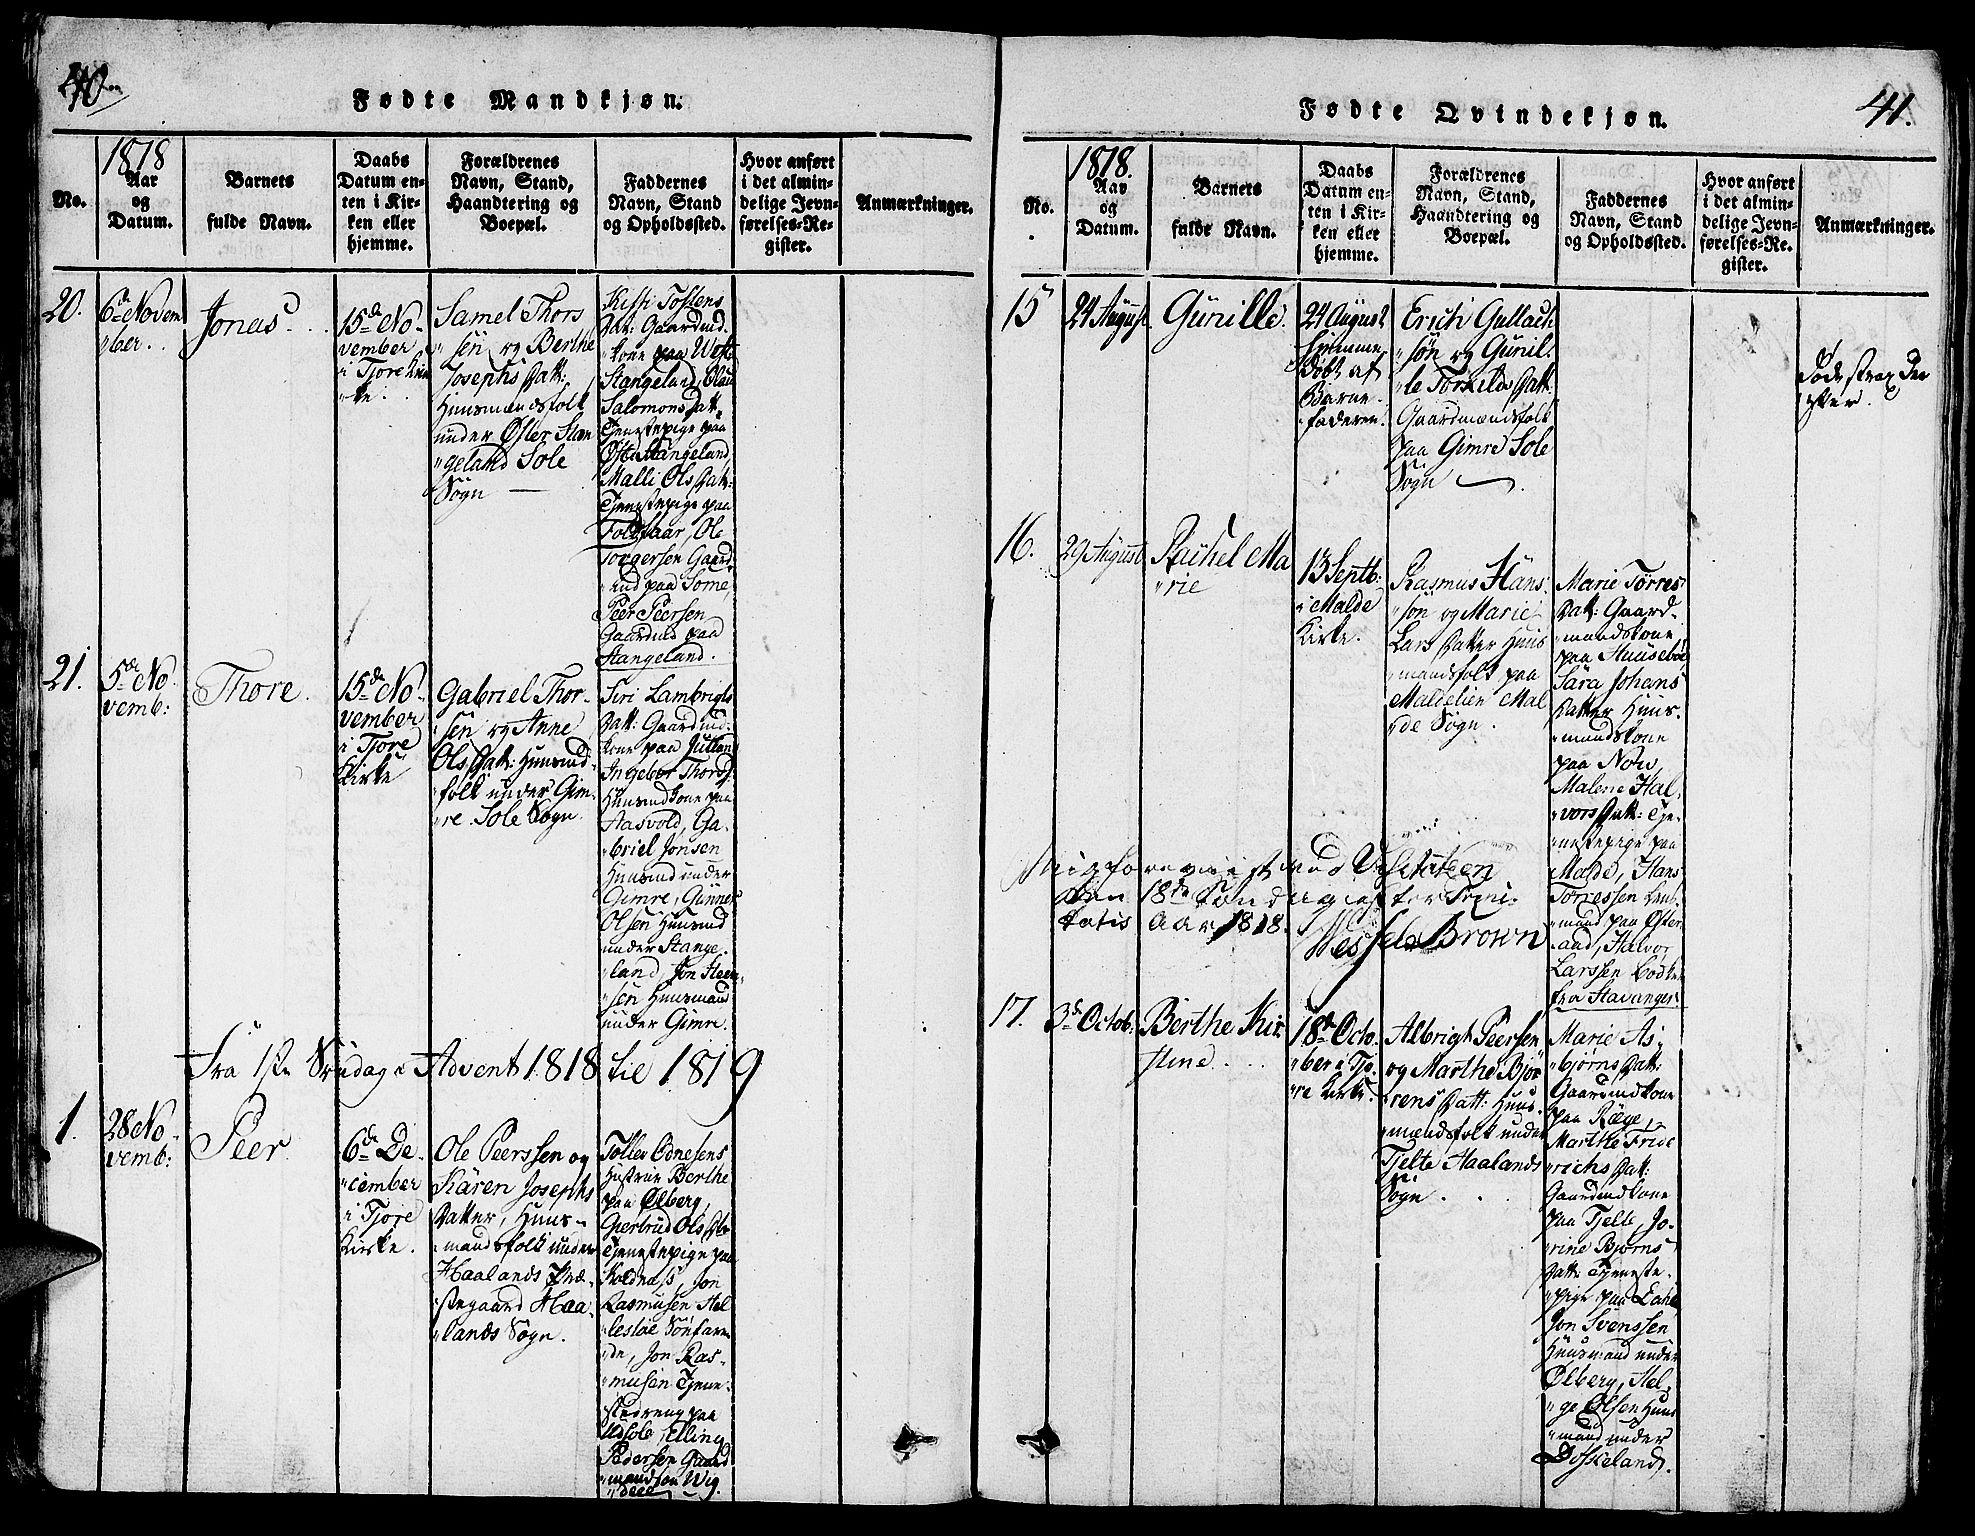 40
Fødte Mandkjøn.
No.
1818
Aar
og
Datum.
Barnets
fulde Navn.
Daabs
Datum en-
ten i Kir-
ken eller
hjemme.
Forældrenes
Navn, Stand,
Haandtering og
Boepæl.
Faddernes
Navn, Stand
og Opholdssted.
Hvor anført
i det almin-
delige Jevn-
førelses-Re-
gister.
Anmærkninger.
20.
6te Novem
ber.
Jonas.
15de No-
vember
i Tjore Kir
ke.
Samel Thors
sen og Berthe
Josephs Datt:
Huusmandsfolk
under Øster Stan
geland Sole
Sogn
Tostens
Datt: Gaardmd.
kone paa West
Stangeland,
Salomons Datt.
Tjenestepige paa
Øst Stangeland
Malli Ols Datt:
Tjenestepige paa
Ole
Torgersen Gaard
md paa Some
Peer Peersen
Gaardmd paa
Stangeland.
21.
5de No
vemb:
Thore.
15de No-
vember
i Tjore
Kirke
Gabriel Thor-
sen og Anne
Ols Datt: Huusmd-
folk under Gim-
re Sole Sogn.
Siri Lambrigts
Datt: Gaardmd:
kone paa
Ingebor Thors
Huusmdkone paa
Aasvold, Ga-
briel Jonsen
Huusmd under
Gimre, Gunner
Olsen Huusmd
under Stange-
land, Jon
sen Huusmand
under Gimre.
Fra 1ste Søndag i Advent 1818 til 1819
1.
28 No-
vemb:
Peer.
6te De-
cember
i Tjore
Kirke.
Ole Peerssen og
Karen Josephs
Datter, Huus-
mandsfolk under
Haalands Præ-
stegaard Haa-
lands Sogn.
Tollev Ednesens
Hustrue Berthe
paa Ølberg,
Giertrud Ols
Tjenestepige paa
Jon
Rasmusen Hel
lestøe
Jon Ras-
musen Tjene-
stedreng paa
Udsole, Elling
Pedersen Gaard
mand
41.
Fødte Qvindekjøn.
No.
1818.
Aar
og
Datum.
Barnets
fulde Navn.
Daabs
Datum en-
ten i Kir-
ken eller
hjemme.
Forældrenes
Navn, Stand,
Haandtering og
Boepæl.
Faddernes
Navn, Stand
og Opholdssted.
Hvor anført
i det almin-
delige Jevn-
førelses-Re-
gister.
Anmærkninger.
15
24 August.
Gunille.
24 August
hjemme
døbt af
Barne-
faderen.
Erich Gullach
søn og Gunil-
le Torkelds Datt:
Gaardmandsfolk
paa Gimre Sole
Sogn
Døde strax der
efter.
16.
29 August
Rachel Ma
rie
13 Septb:
i Malde
Kirke.
Rasmus Hans-
søn og Marie
Lars Datter Huus
mandsfolk paa
Maldelien Mal
de Sogn.
Marie Torres
Datt: Gaard-
mandskone
paa Huusebøe
Sara Johans
Datter Huus-
mandskone
paa
Malene Hal-
vors Datt: Tje-
nestepige paa
Malde, Hans
Torressen
mand paa
Halvor
Larssen
fra Stavanger
Mig foreviist ved Visitatzen
den 18de Søndag efter Trini-
tatis Aar 1818.
Wessel Brown
17.
3de Octob:
Berthe Kir
stine.
18de Octo-
ber i Tjo
re Kirke.
Albrigt Peersen
og Marthe Bjør
rens Datt: Huus-
mændsfolk under
Tjelte Haalands
Sogn.
Marie As-
bjørns Datt:
Gaardmdkone
paa Ræge,
Marthe Fride
richs Datt:
Gaardmdkone
paa Tjelte, Jo-
rine Bjørns
Datt: Tjeneste-
pige paa
Jon Svenssen
Huusmand under
Ølberg, Hel-
ge Olsen Huus
mand under